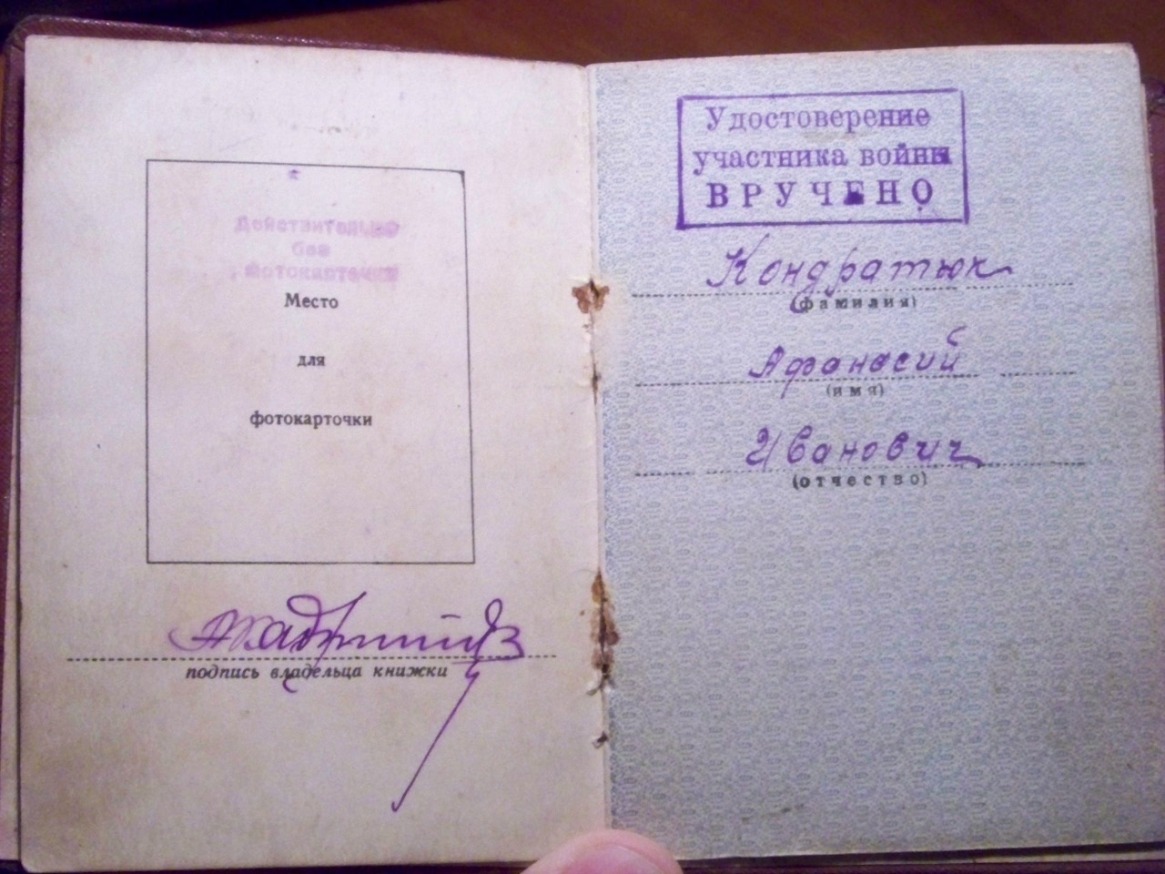 Действительно
без
фотокарточки
Место
для
фотокарточки
подпись владельца книжки
Удостоверение
участника войны
ВРУЧЕНО
Кондратюк
(фамилия)
Афанасий
(имя)
Иванович
(отчество)